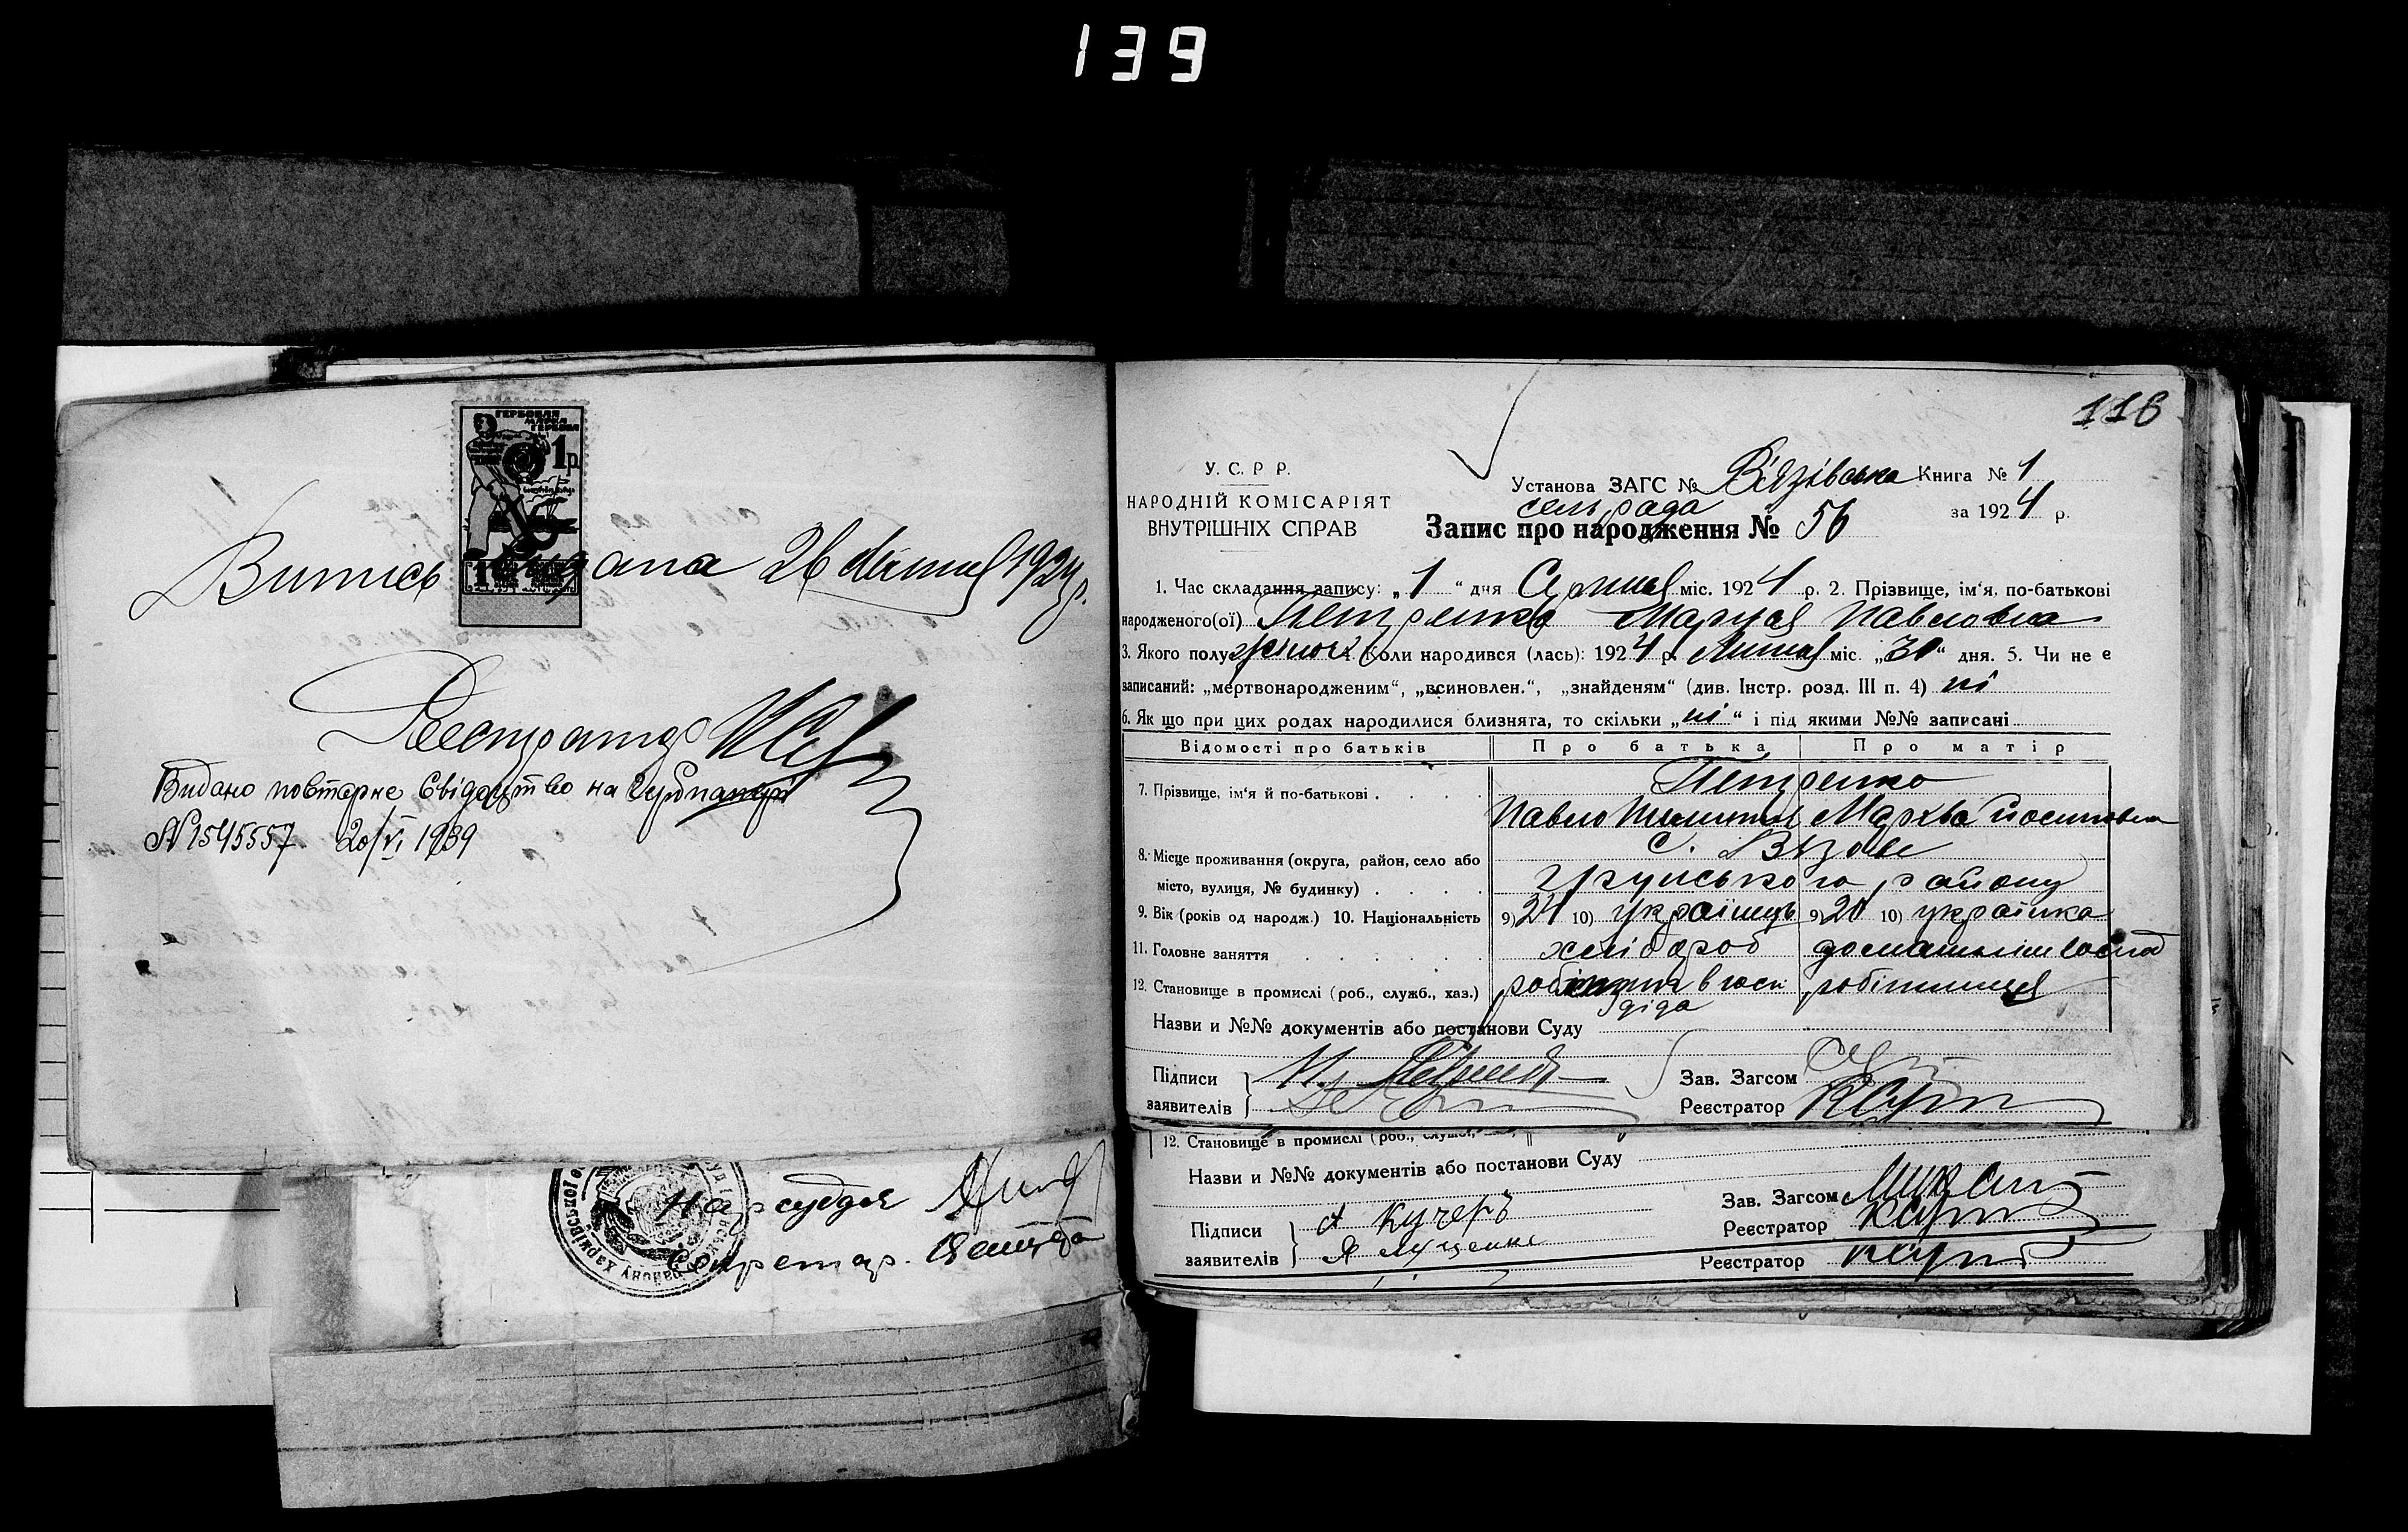 139
ГЕРБОВАЯ
МАРКА
1 р.
Витись видана 26 липня 1924 р.
Реєстратор
Видано повторне свідоцтво на
N 1545557 20/VI 1939
Нарсуддя
Секретар.
116
У. С. Р Р.
НАРОДНІЙ КОМІСАРІЯТ
ВНУТРІШНІХ СПРАВ
Установа ЗАГС № Вязівська Книга № 1
сельрада
Запис про народження № 56 за 1924 р.
1. Час складання запису: „1“ дня Серпня міс. 1924 р. 2. Прізвище, ім‘я, по-батькові
народженого(ої) Петренко Мария Павловна
3. Якого полу жіноч. 4. Коли народився (лась): 1924 р. Липня міс. „30“ дня. 5. Чи не є
записаний: „мертвонародженим“, „всиновлен.“, „знайденям“ (див. Інстр. розд. III п. 4) ні
6. Як що при цих родах народилися близнята, то скільки „ні“ і під якими №№ записані
Відомості про батьків Про батька Про матір
7. Прізвище, ім‘я й по-батькові . Петренко
Павло Мархва Йосиповна
8. Місце проживання (округа, район, село або с. Вязове
місто, вулиця, № будинку) . Грунського району
9. Вік (років од народж.) 10. Національність 9) 21 10) українець 9) 20 10) українка
11. Головне заняття хлібороб
12. Становище в промислі (роб., служб., хаз.) в госп робітниця
діда
Назви и №№ документів або постанови Суду
Підписи Зав. Загсом
заявителів Реєстратор
12. Становище в промислі (роб., служб.,
Назви и №№ документів або постанови Суду
Підписи А Кучеръ Зав. Загсом
заявителів Я Луценко Реєстратор
Реєстратор